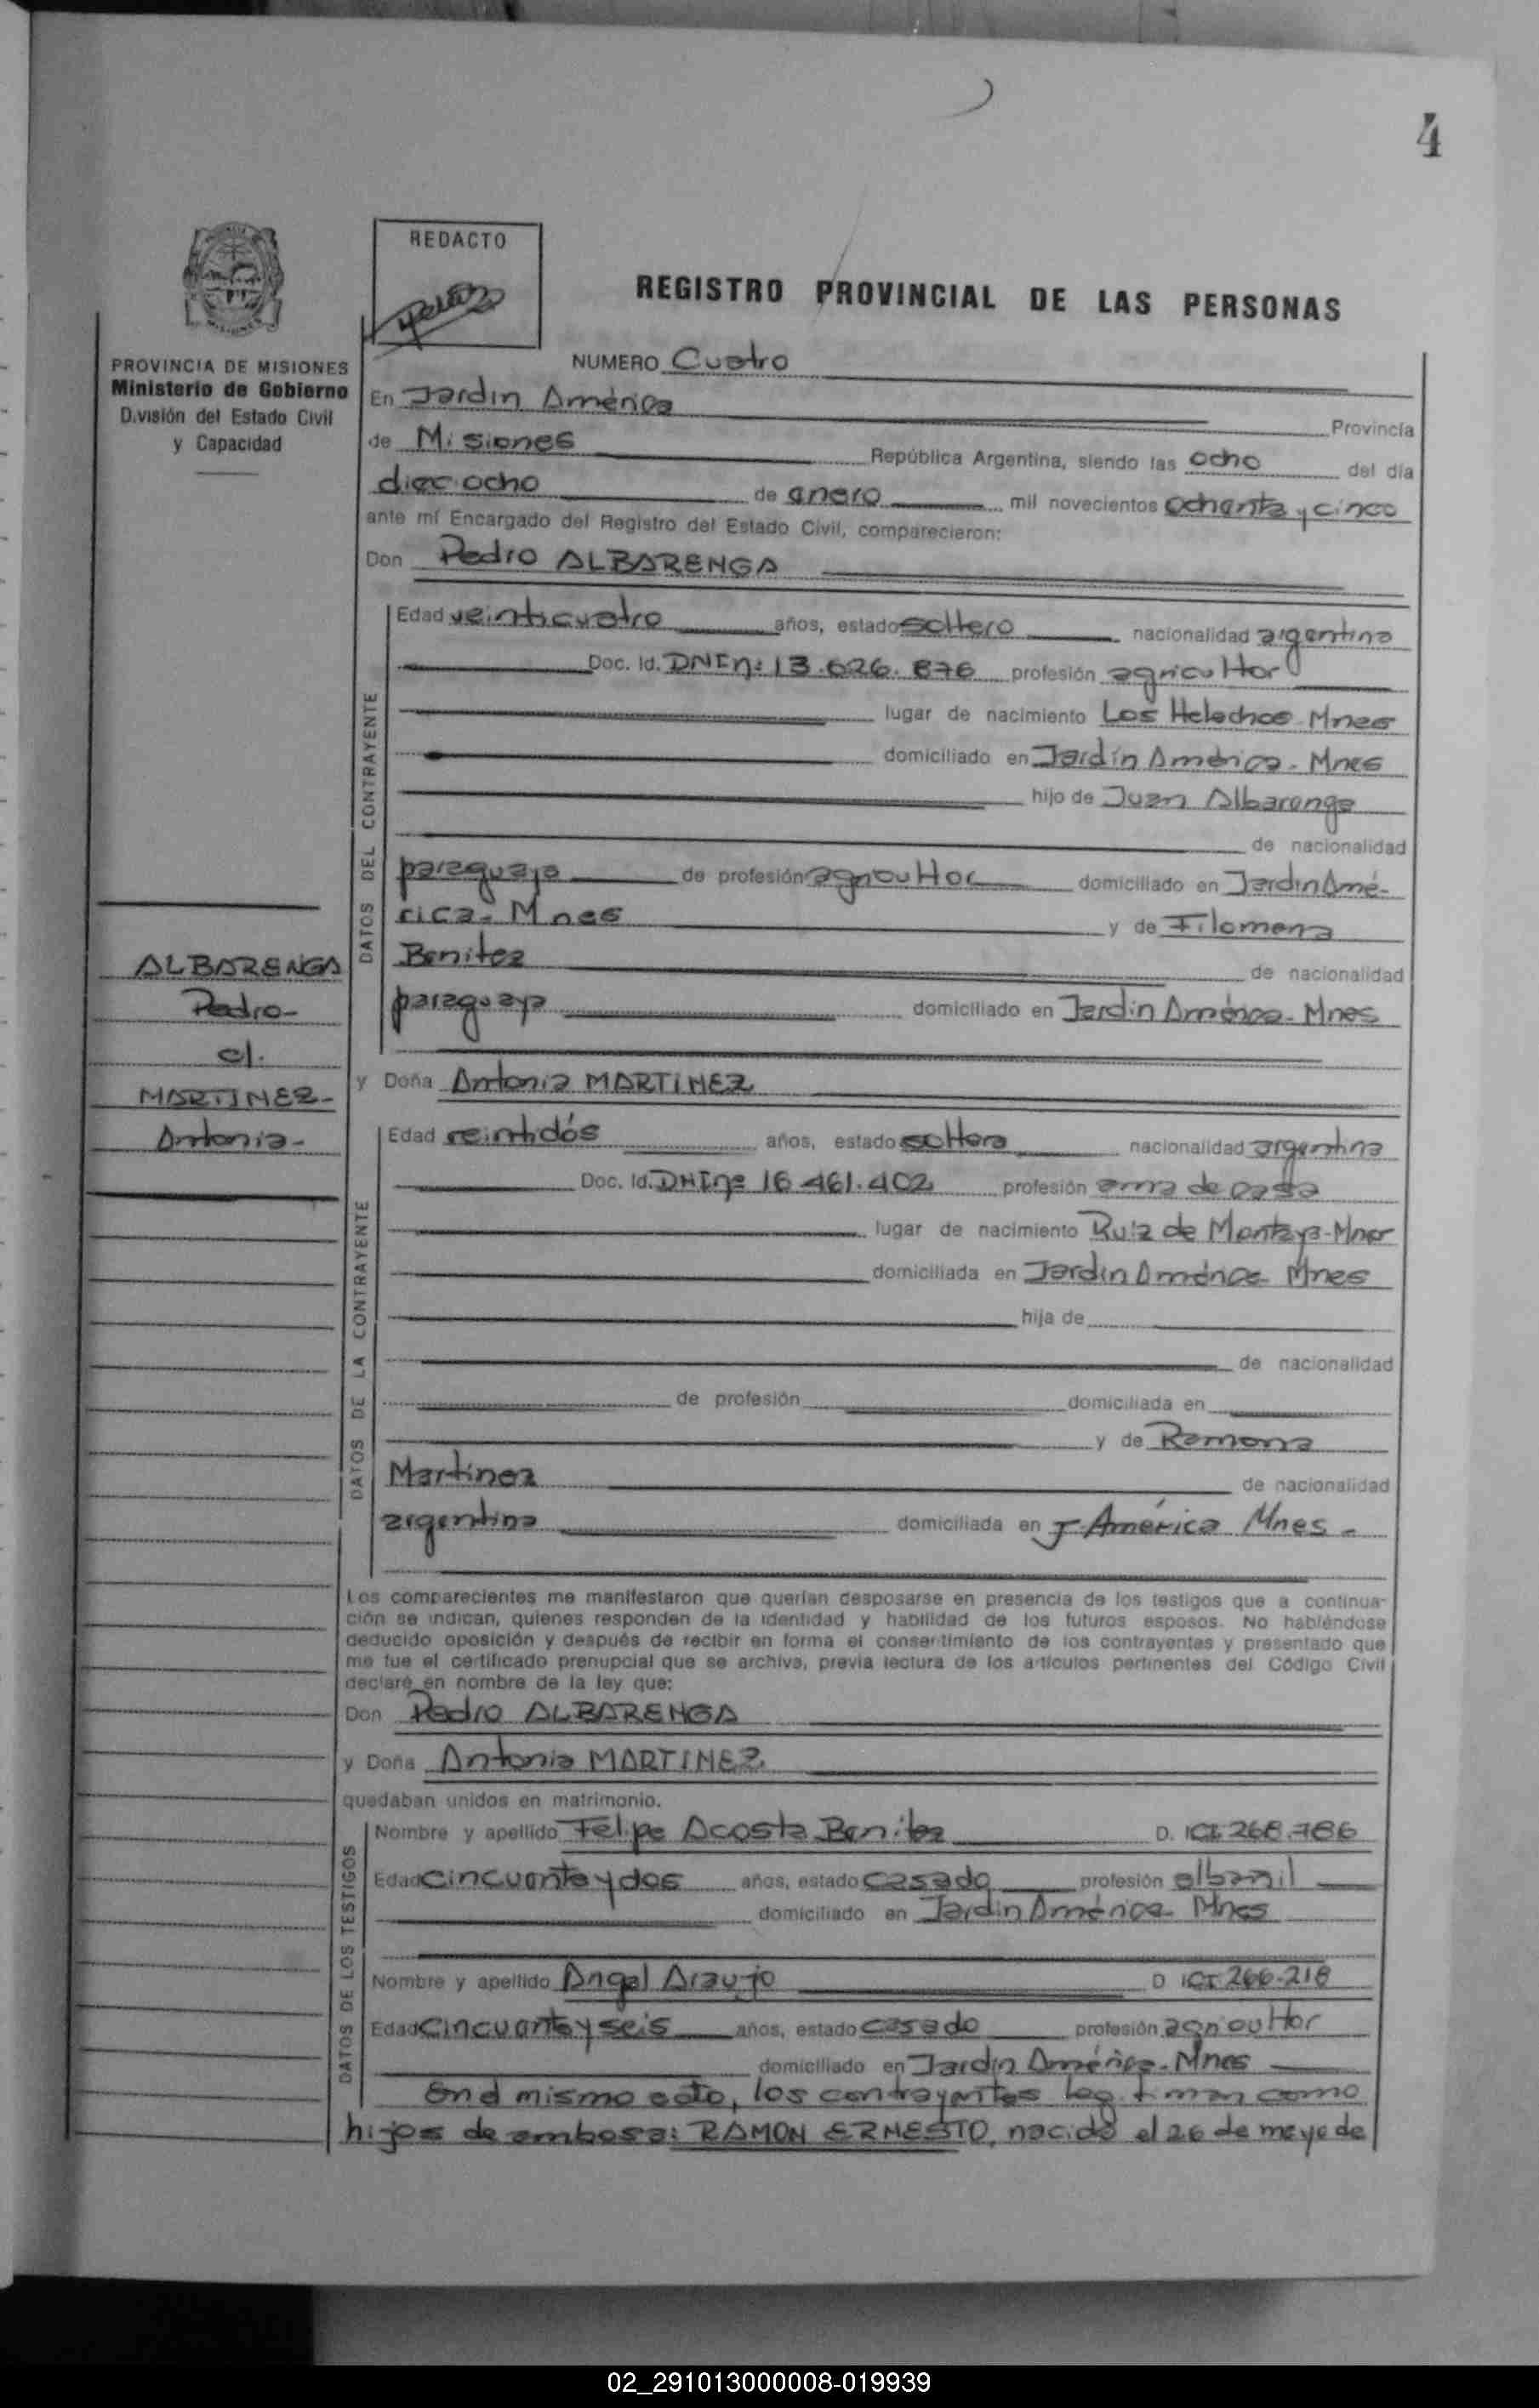 4
REDACTO
REGISTRO PROVINCIAL DE LAS PERSONAS
PROVINCIA DE MISIONES
Ministerio de Gobierno
División del Estado Civil
y Capacidad
NUMERO Cuatro
En Jardin América Provincia
de Misiones República Argentina, siendo las ocho del día
dieciocho de enero mil novecientos ochenta y cinco
ante mí Encargado del Registro del Estado Civil, comparecieron:
Don Pedro ALBARENGA
DATOS DEL CONTRAYENTE
Edad veinticuatro años, estado soltero nacionalidad argentina
Doc. Id. DNI nº 13.626.876 profesión agricultor
lugar de nacimiento Los Helechos-Mnes
domiciliado en Jardín América-Mnes
hijo de Juan Albarenga
de nacionalidad
paraguaya de profesión agricultor domiciliado en Jardin Amé-
rica-Mnes y de Filomena
Benitez de nacionalidad
paraguaya domiciliado en Jardin América-Mnes
ALBARENGA
Pedro-
c/.
MARTINEZ-
Antonia-
y Doña Antonia MARTINEZ
DATOS DE LA CONTRAYENTE
Edad veintidós años, estado soltera nacionalidad argentina
Doc. Id. DNI nº 16.461.402 profesión ama de casa
lugar de nacimiento Ruiz de Montoya-Mnes
domiciliada en Jardin América-Mnes
hija de
de nacionalidad
de profesión domiciliada en
y de Ramona
Martinez de nacionalidad
argentina domiciliada en J-América Mnes-
Los comparecientes me manifestaron que querían desposarse en presencia de los testigos que a continua-
ción se indican, quienes responden de la identidad y habilidad de los futuros esposos. No habiéndose
deducido oposición y después de recibir en forma el consentimiento de los contrayentes y presentado que
me fue el certificado prenupcial que se archiva, previa lectura de los artículos pertinentes del Código Civil
declaré en nombre de la ley que:
Don Pedro ALBARENGA
y Doña Antonia MARTINEZ
quedaban unidos en matrimonio.
DATOS DE LOS TESTIGOS
Nombre y apellido Felipe Acosta Benitez D. I CI 268.786
Edad cincuenta y dos años, estado casado profesión albanil
domiciliado en Jardin América-Mnes
Nombre y apellido Angel Araujo D I CI 266.218
Edad cincuenta y seis años, estado casado profesión agricultor
domiciliado en Jardin América-Mnes
En el mismo acto, los contrayentes legitiman como
hijos de ambos a: RAMON ERNESTO, nacido el 26 de mayo de
02_291013000008-019939